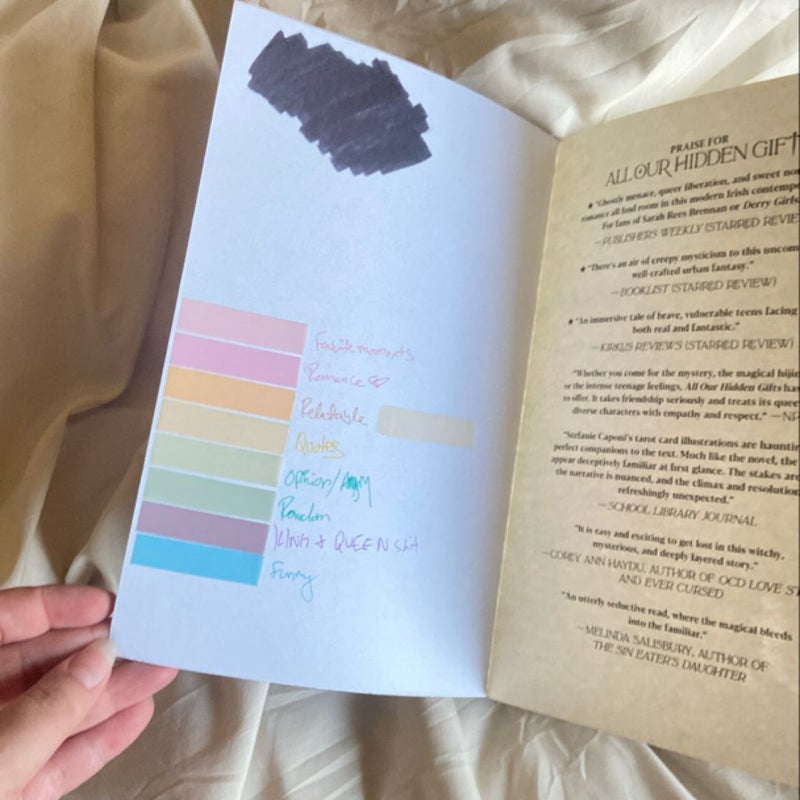 Favorite moments
Romance ♡
Relatable
Quotes
Opinion/Angry
Random
KING & QUEEN shit
Funny
PRAISE FOR
ALL OUR HIDDEN GIFT
★ "Ghostly menace, queer liberation, and sweet
romance all find room in this modern Irish contemp
For fans of Sarah Rees Brennan or Derry Girls
—PUBLISHERS WEEKLY (STARRED REVIE
★ "There's an air of creepy mysticism to this uncom
well-crafted urban fantasy."
—BOOKLIST (STARRED REVIEW)
★ "An immersive tale of brave, vulnerable teens facing
both real and fantastic."
—KIRKUS REVIEWS (STARRED REVIEW)
"Whether you come for the mystery, the magical hijin
or the intense teenage feelings, All Our Hidden Gifts has
to offer. It takes friendship seriously and treats its quee
diverse characters with empathy and respect." —NP
"Stefanie Caponi's tarot card illustrations are hauntin
perfect companions to the text. Much like the novel, the
appear deceptively familiar at first glance. The stakes are
the narrative is nuanced, and the climax and resolution
refreshingly unexpected."
—SCHOOL LIBRARY JOURNAL
"It is easy and exciting to get lost in this witchy,
mysterious, and deeply layered story."
—COREY ANN HAYDU, AUTHOR OF OCD LOVE ST
AND EVER CURSED
"An utterly seductive read, where the magical bleeds
into the familiar."
—MELINDA SALISBURY, AUTHOR OF
THE SIN EATER'S DAUGHTER